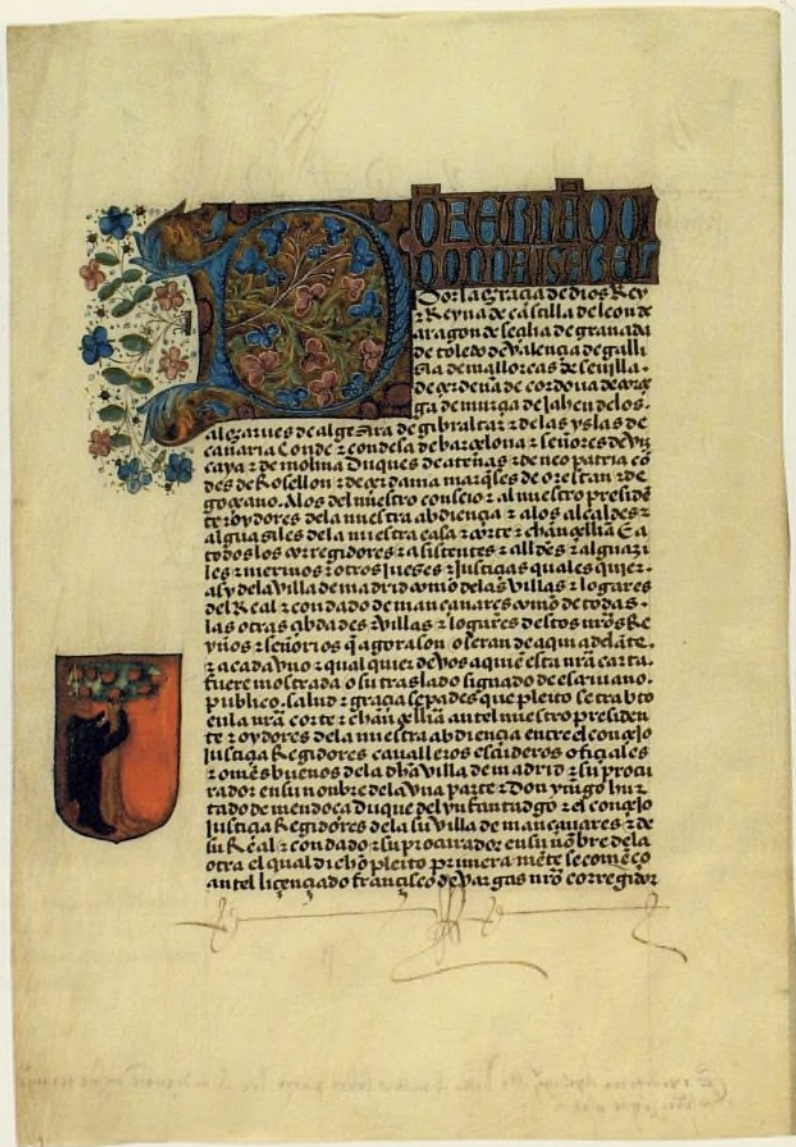 DON FERNĀDO
DONNA ISABEL
Por la gracia de dios Rey
⁊ Reyna de castilla de leon de
aragon de seçilia de granada
de toledo de valençia de galli
sia de mallorcas de seuilla.
de çerdeña de cordoua de corçe
ga de murçia de Jahen de los.
algarues de algezira de gibraltar ⁊ de las yslas de
canaria Conde ⁊ condesa de barçelona ⁊ señores de vis
caya ⁊ de molina Duques de atenas ⁊ de neo patria cō
des de Rosellon ⁊ de çerdania marq̄ses de orestan ⁊ de
goçeano. A los del nuestro consejo ⁊ al nuestro presidē
te ⁊ oydores dela nuestra abdiençia ⁊ a los alcaldes ⁊
alguasiles dela nuestra casa ⁊ corte ⁊ chançelliā E a
todos los corregidores ⁊ asistentes ⁊ alldēs ⁊ alguazi
les ⁊ merinos ⁊ otros Jueses ⁊ Justiçias quales quier.
asy dela villa de madrid comō delas villas ⁊ logares
del Real ⁊ condado de mançanares comō de todas.
las otras çibdades ⁊ villas ⁊ logares destos nrōs Re
ynos ⁊ señorios q̄ agora son o seran de aqui adelāte.
⁊ a cada vno ⁊ qual quier de vos a quiē esta nrā carta.
fuere mostrada o su traslado signado de escriuano.
publico. salud ⁊ graçia sepades que pleito se trabto
en la nrā corte ⁊ chançelliā antel nuestro presiden
te ⁊ oydores dela nuestra abdiençia entre el conçejo
Justiçia Regidores caualleros escuderos ofiçiales
⁊ omēs buenos dela dha villa de madrid ⁊ su procu
rador en su nonbre dela vna parte ⁊ Don yñigo hur
tado de mendoça Duque del ynfantadgo ⁊ el conçejo
Justiçia Regidores dela su villa de mançanares ⁊ de
su Real ⁊ condado ⁊ su procurador en su nōbre dela
otra el qual dicho pleito primera mēte se comēço
antel liçençiado françisco de vargas nrō corregidor